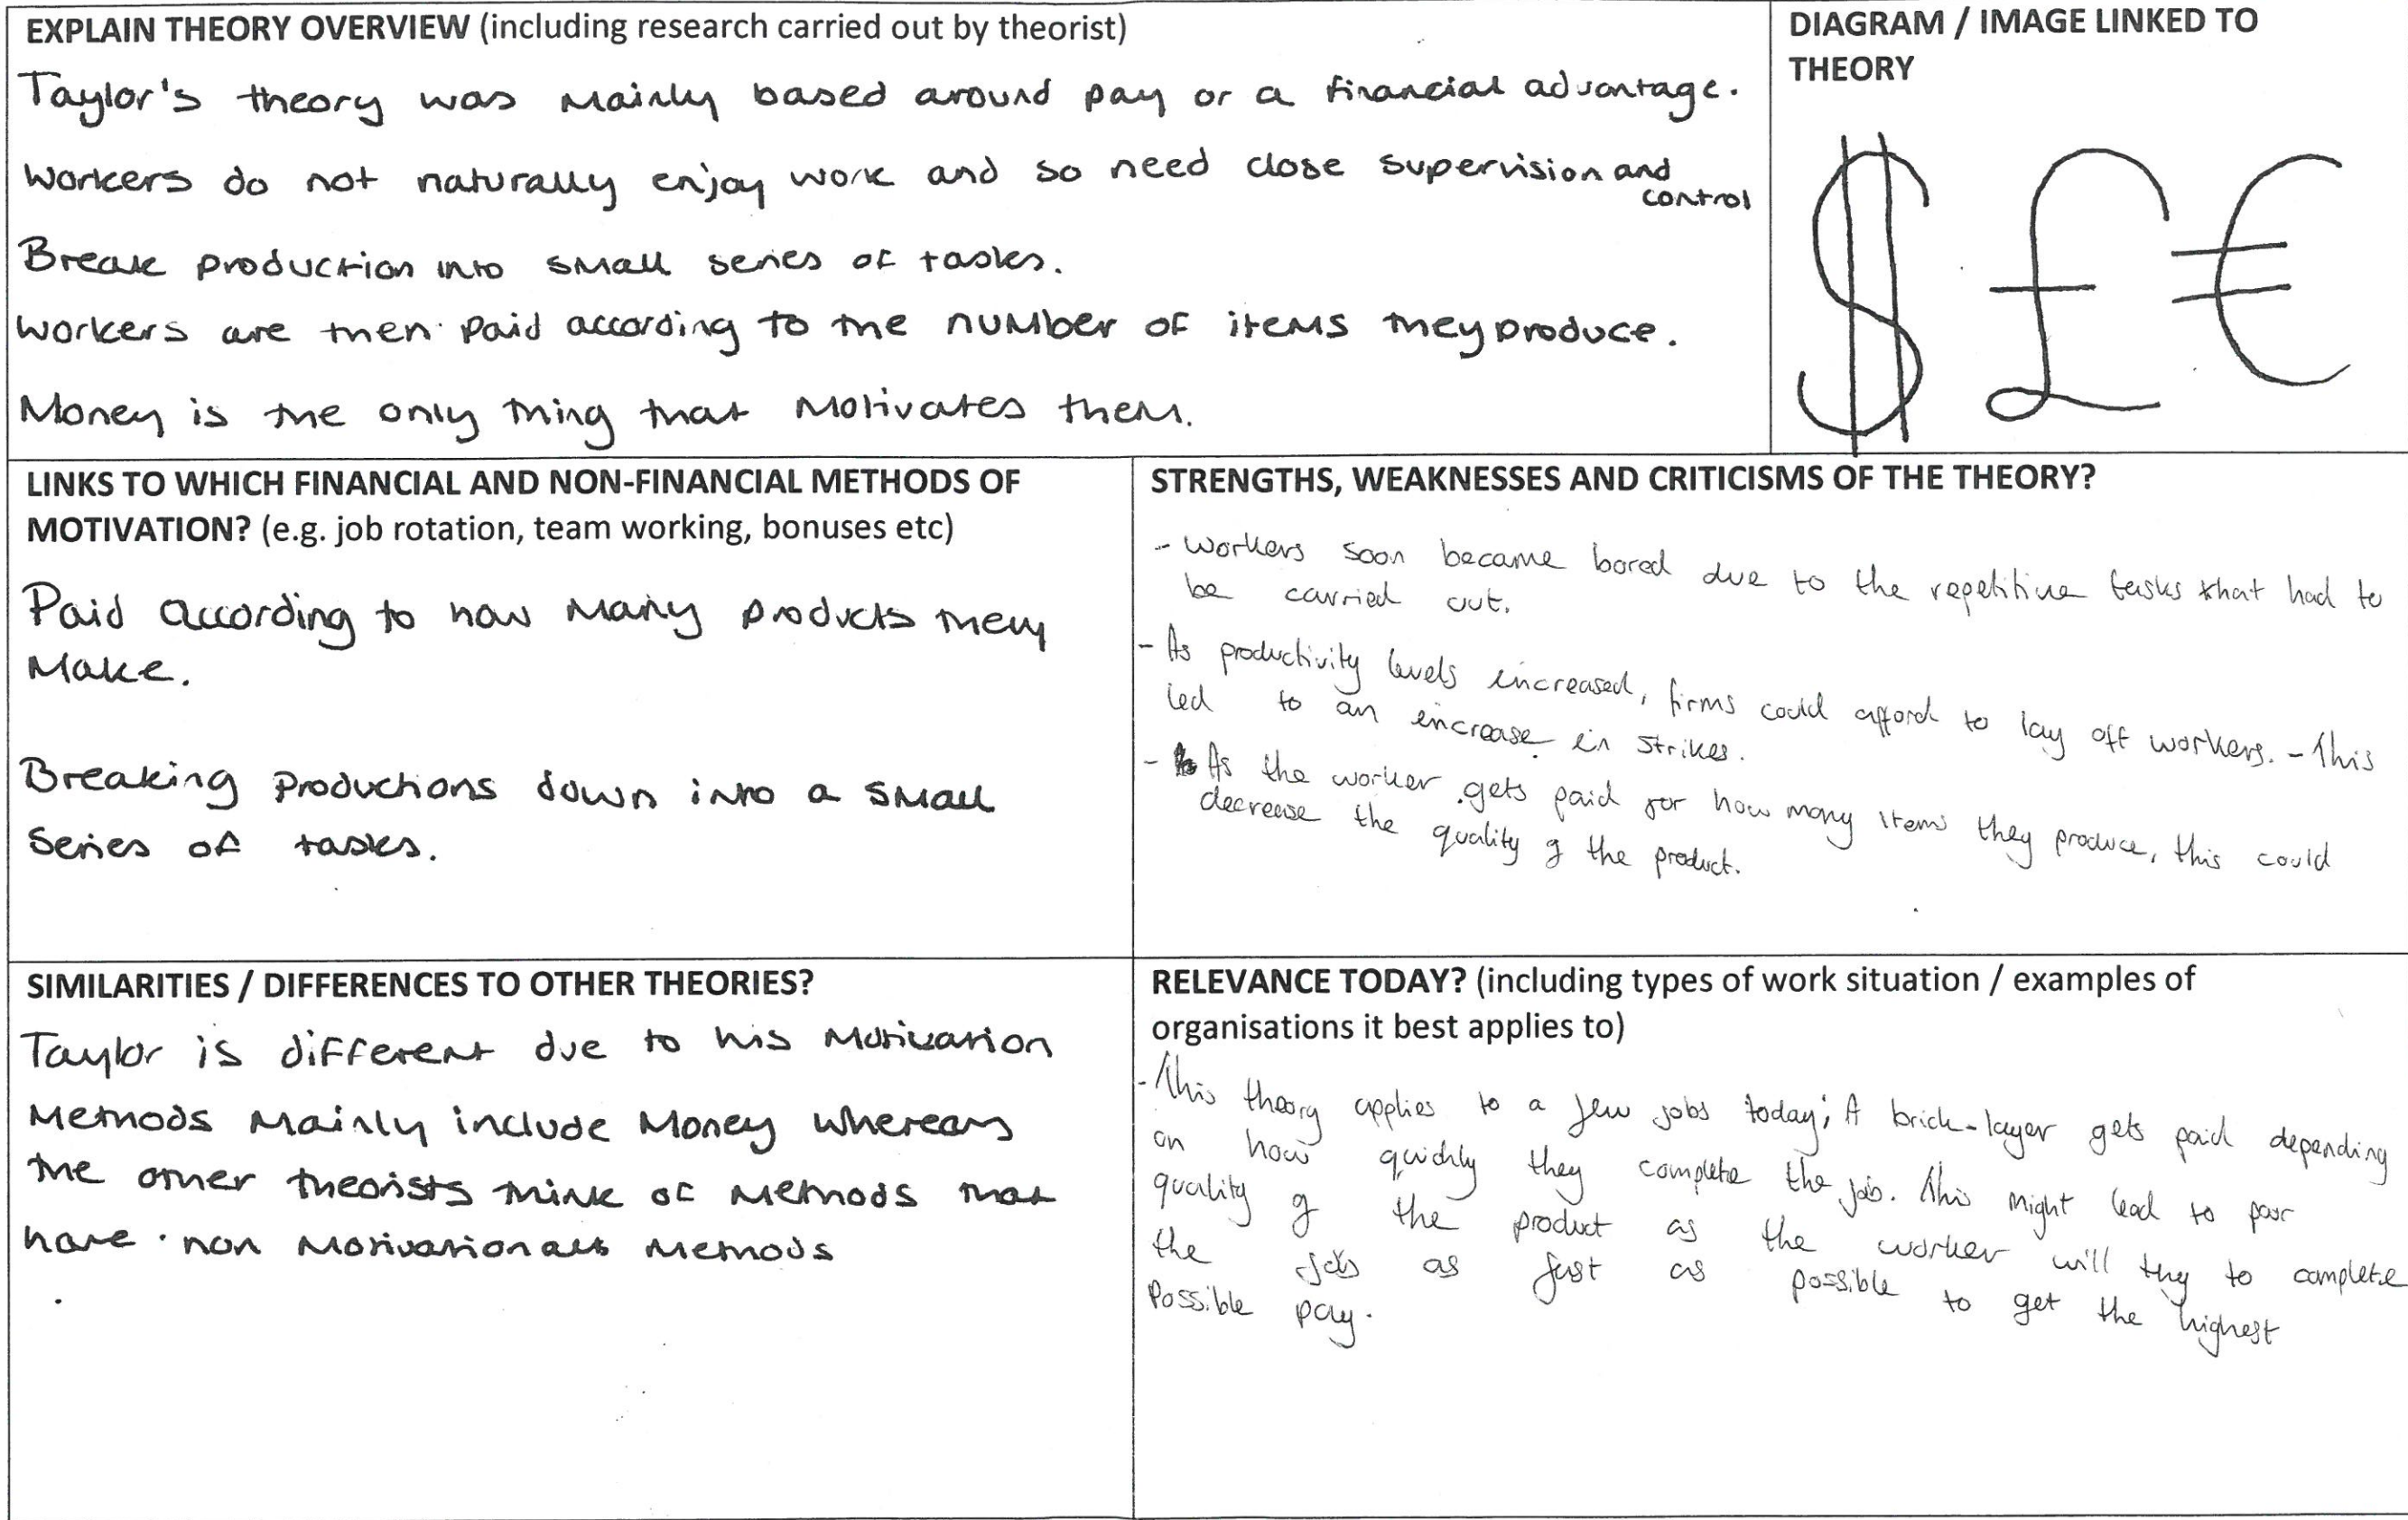 EXPLAIN THEORY OVERVIEW (including research carried out by theorist)
Taylor's theory was mainly based around pay or a financial advantage.
Workers do not naturally enjoy work and so need close supervision and
control
Break production into small series of tasks.
Workers are then paid according to the number of items they produce.
Money is the only thing that motivates them.
DIAGRAM / IMAGE LINKED TO
THEORY
$ £ €
LINKS TO WHICH FINANCIAL AND NON-FINANCIAL METHODS OF
MOTIVATION? (e.g. job rotation, team working, bonuses etc)
Paid according to how many products they
make.
Breaking productions down into a small
series of tasks.
STRENGTHS, WEAKNESSES AND CRITICISMS OF THE THEORY?
- Workers soon became bored due to the repetitive tasks that had to
be carried out.
- As productivity levels increased, firms could afford to lay off workers. - This
led to an increase in strikes.
- As the worker gets paid for how many items they produce, this could
decrease the quality of the product.
SIMILARITIES / DIFFERENCES TO OTHER THEORIES?
Taylor is different due to his motivation
methods mainly include money whereas
the other theorists think of methods that
have non motivational methods
RELEVANCE TODAY? (including types of work situation / examples of
organisations it best applies to)
- This theory applies to a few jobs today; A brick-layer gets paid depending
on how quickly they complete the job. This might lead to poor
quality of the product as the worker will try to complete
the job as fast as possible to get the highest
possible pay.